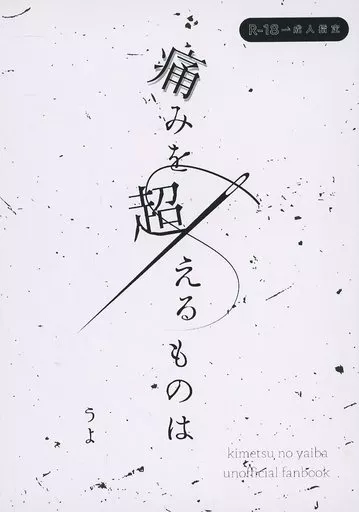 R-18 成人指定
痛みを超えるものは
うよ
kimetsu no yaiba
unofficial fanbook